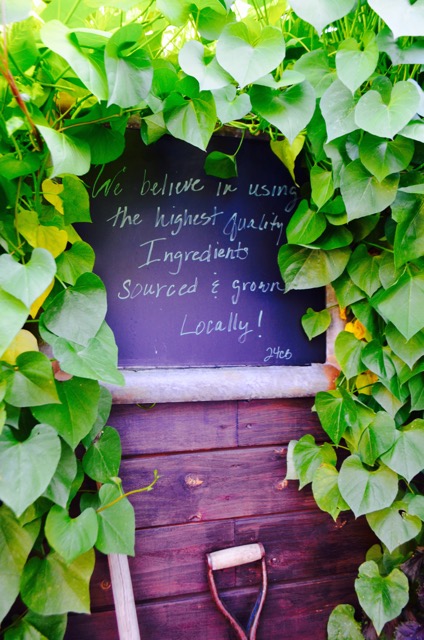 We believe in using
the highest Quality
Ingredients
Sourced & grown
Locally!
24cb